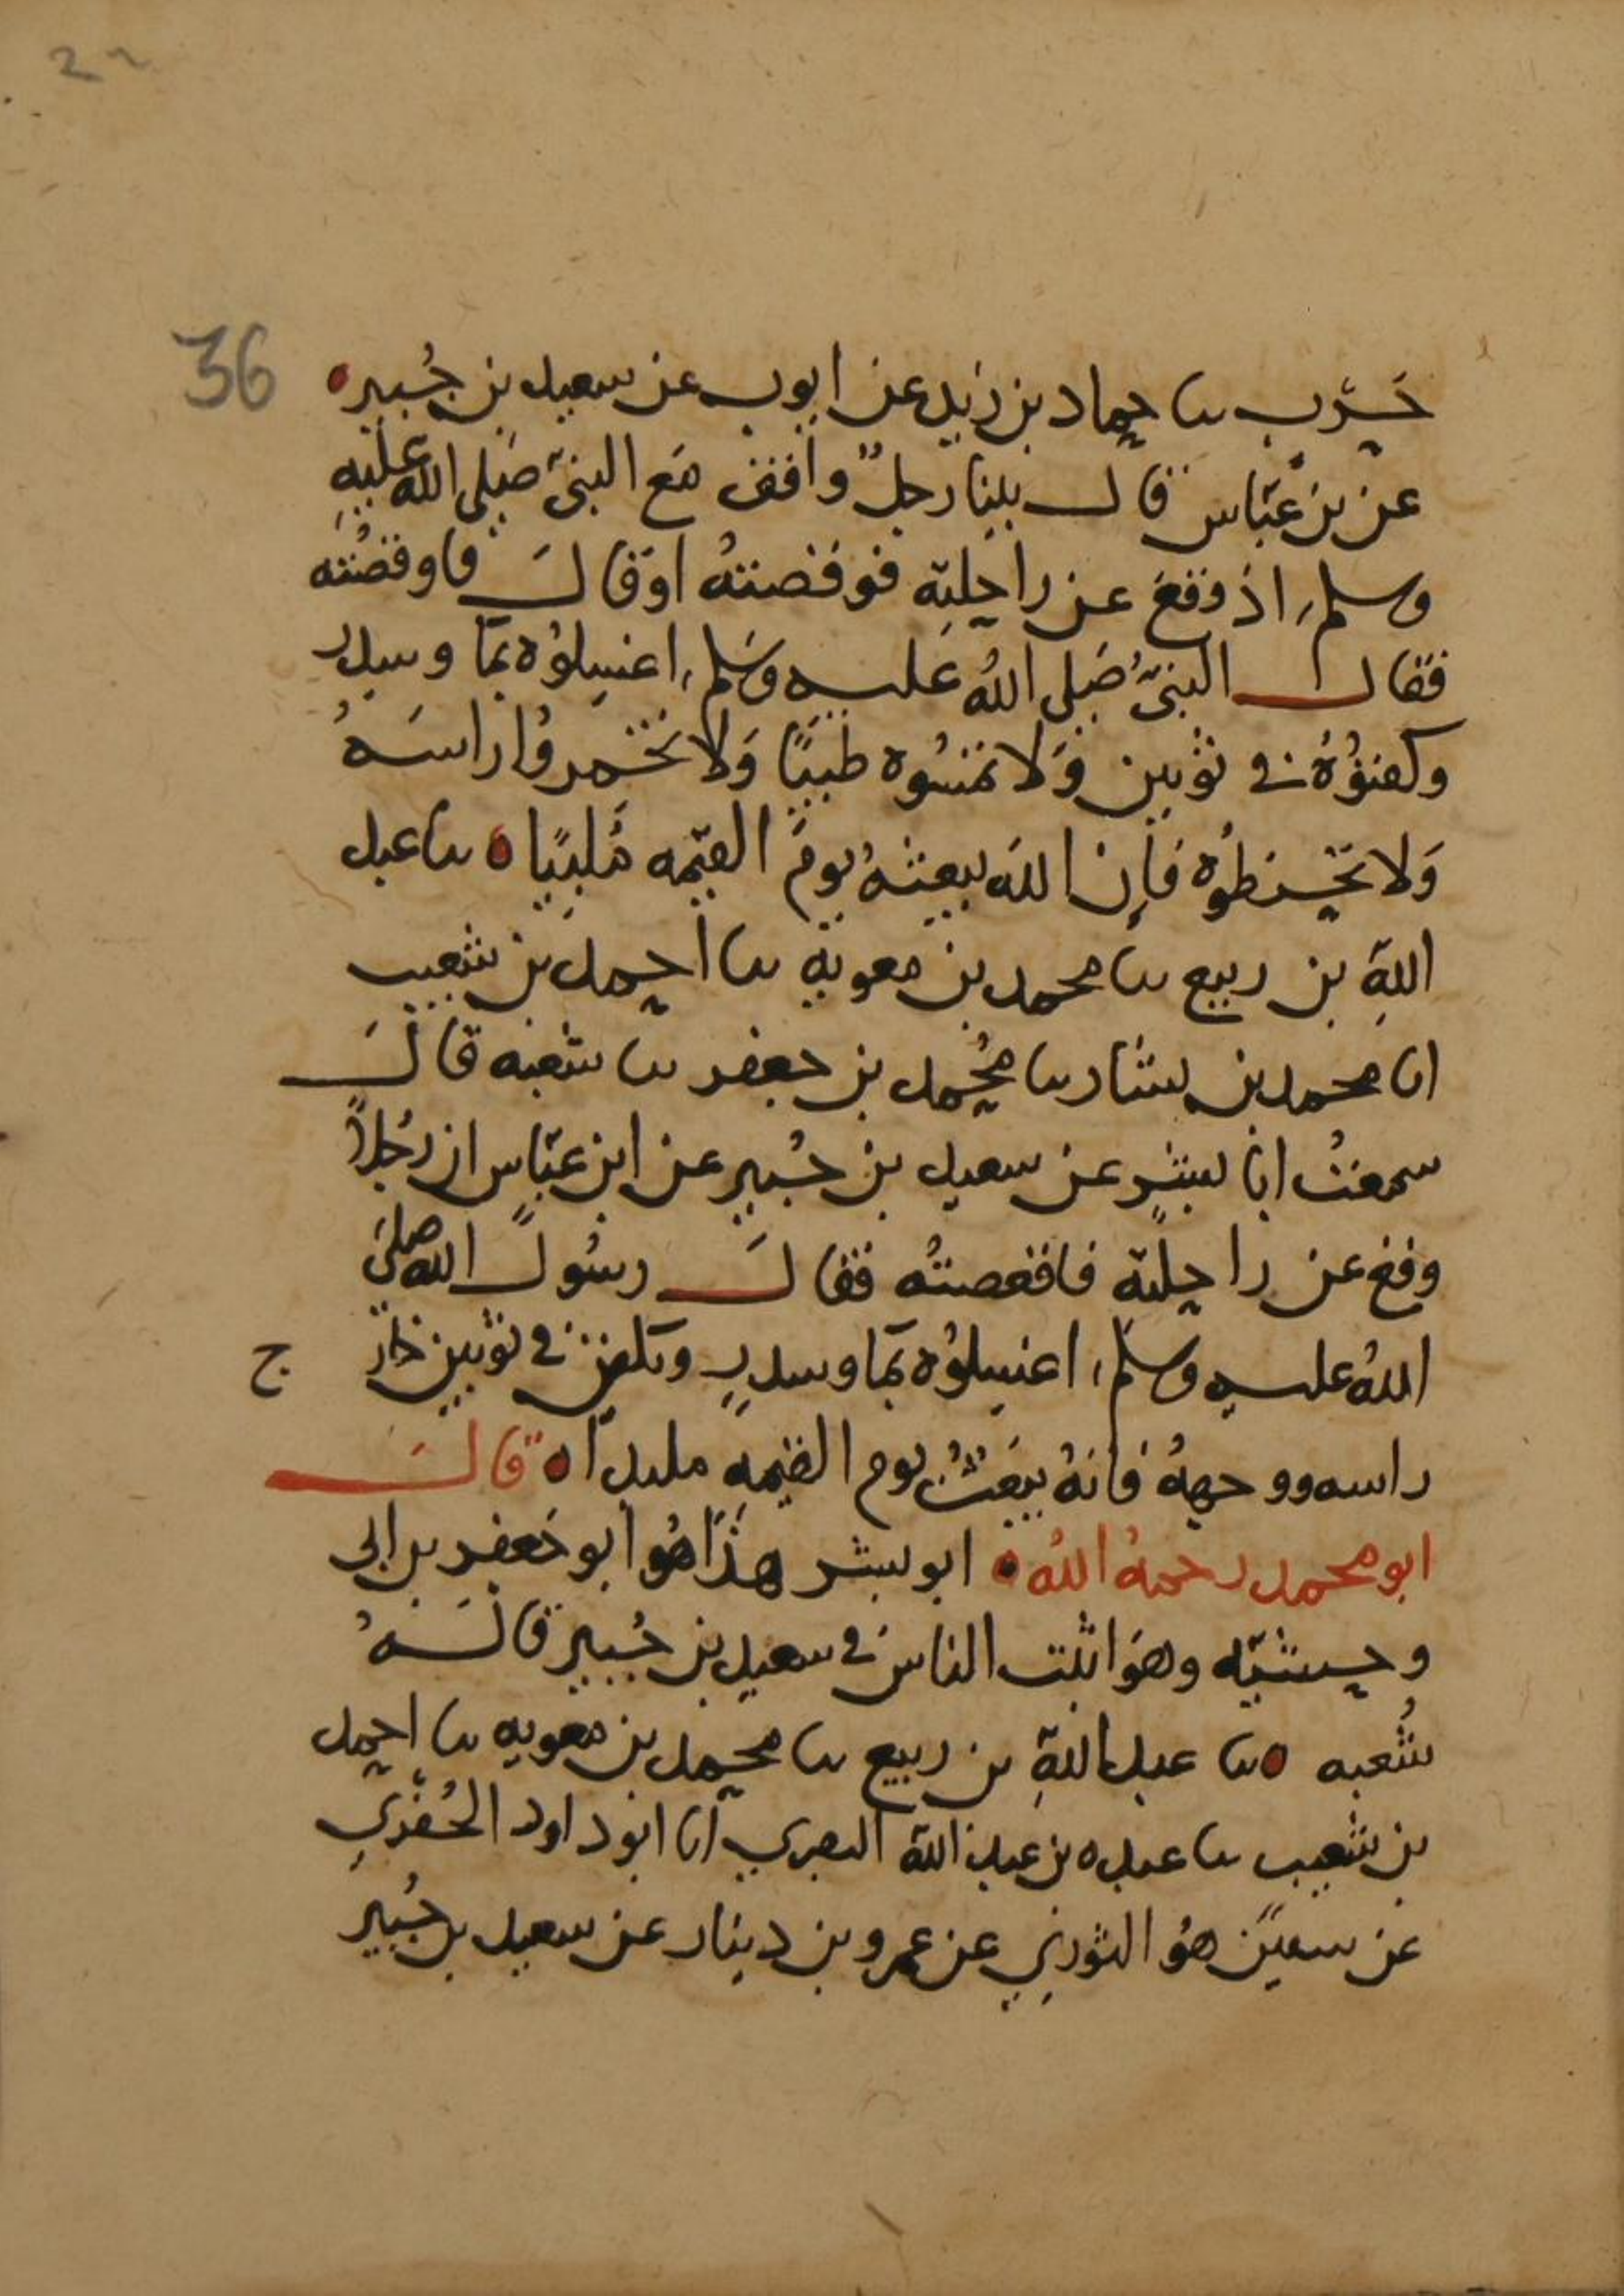 36
حَرْب نا حماد بن زيد عن ايوب عن سعيد بن جُبير ه
عن بن عبّاس قال بينا رجلٌ واقف مَع النبيّ صَلى الله عليهِ
وسلم، اذ وَقعَ عن راحِلتِهِ فوقَصَتهُ او قالَ فاوقصَتْه
فقال النبيُّ صَلى اللهُ عليه وسَلم، اغسِلوُه بمَا وسِدر
وكفنوُهُ في ثوْبين وَلا تمَسُّوه طيبًا وَلا تخمروُا راسَهُ
وَلا تحَنطوُه فاِن اللهَ يبعثهُ يومَ القيٰمه مُلبّيًا ه نا عبد
اللهِ بن ربيع نا محمد بن معويه نا احمد بن شعيب
انا محمد بن بشار نا مُحمد بن جعفر نا شعبه قالَ
سمعتُ ابا بشرٍ عن سعيد بن جُبيرٍ عن ابن عبّاس ان رَجُلًا
وقع عن راحِلتهِ فاقعصتْه فقالَ رسُول الله صلىَ
اللهُ عليه وسلم، اغسِلوُه بمَا وسدرٍ ويكفن في ثوبين خارج
راسه ووجههُ فانهُ يبعَثُ يوم القيٰمه ملبدا ه قالَ
ابو محمد رحمهُ اللهُ ه ابو بشر هذَا هُوَ ابو جَعفر بن ابي
وحشيّه وهوَ اثبت الناسِ في سعيد بن جُبير قالَهُ
شُعبه ه نا عبد اللهِ بن ربيع نا محمد بن معويه نا احمد
بن شعيب نا عبده بن عبد الله البصري انا ابو داود الحُفَري
عن سفيٰن هوُ الثوري عن عمرو بن دينار عن سعيد بن جُبير